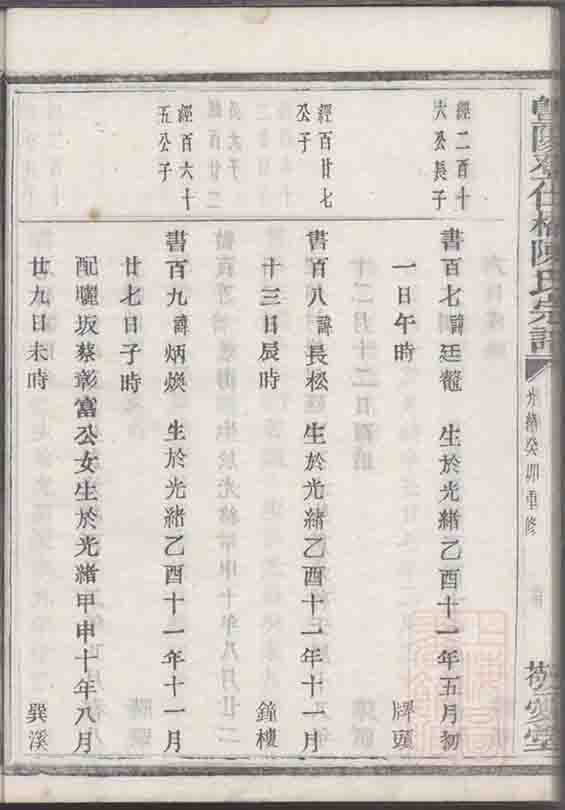 暨陽孝仕橋陳氏宗譜
光緒癸卯重修
敬愛堂
經二百十
六公長子
書百七諱廷鼇 生於光緒乙酉十一年五月初
一日午時 牌頭
經百廿七
公子
書百八諱長松 生於光緒乙酉十一年十一月
十三日辰時 鐘樓
經百六十
五公子
書百九諱炳煥 生於光緒乙酉十一年十一月
廿七日子時
配曬坂蔡彰富公女生於光緒甲申十年八月
廿九日未時 巽溪